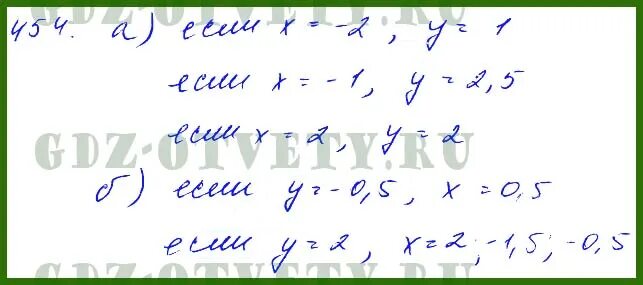 454. а) если x = -2, y = 1
если x = -1, y = 2,5
если x = 2, y = 2
б) если y = -0,5, x = 0,5
если y = 2, x = 2; -1,5; -0,5
GDZ-OTVETY.RU
GDZ-OTVETY.RU
GDZ-OTVETY.RU